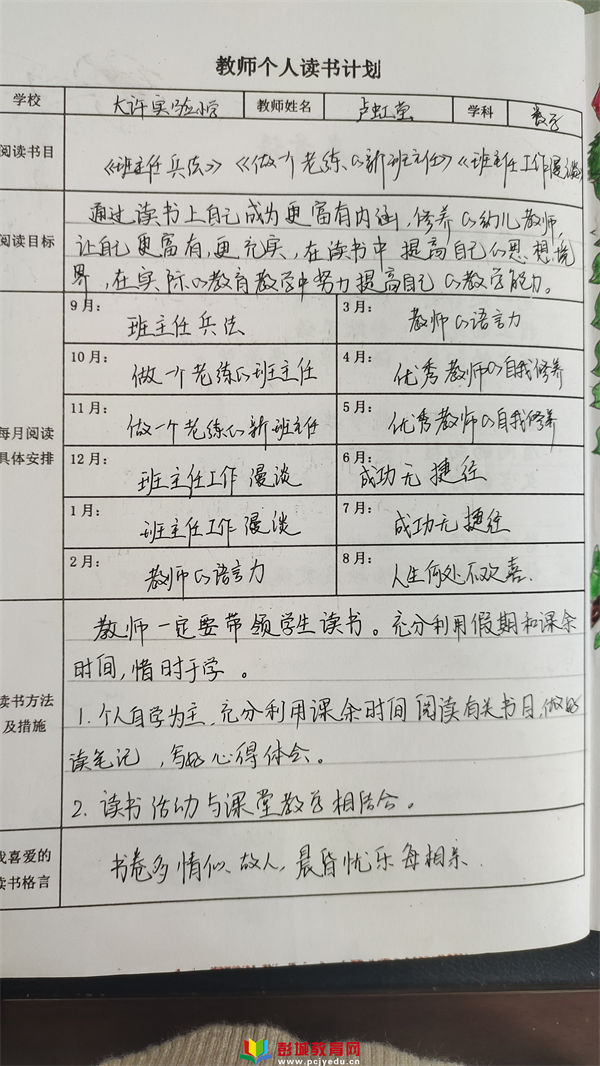 教师个人读书计划
学校 大许实验小学 教师姓名 卢虹莹 学科 数学
阅读书目 《班主任兵法》《做一个老练的新班主任》《班主任工作漫谈》
通过读书上自己成为更富有内涵,修养的幼儿教师,
阅读目标 让自己更富有,更充实,在读书中提高自己的思想境
界,在实际的教育教学中努力提高自己的教学能力。
9月: 班主任兵法 3月: 教师的语言力
10月: 做一个老练的班主任 4月: 优秀教师的自我修养
11月: 做一个老练的新班主任 5月: 优秀教师的自我修养
每月阅读
具体安排
12月: 班主任工作漫谈 6月: 成功无捷径
1月: 班主任工作漫谈 7月: 成功无捷径
2月: 教师的语言力 8月: 人生何处不欢喜.
教师一定要带领学生读书。充分利用假期和课余
时间,惜时于学。
读书方法
及措施
1.个人自学为主,充分利用课余时间阅读有关书目,做好
读笔记,写好心得体会。
2.读书活动与课堂教学相结合。
我喜爱的
读书格言
书卷多情似故人,晨昏忧乐每相亲.
彭城教育网
www.pcjyedu.cn